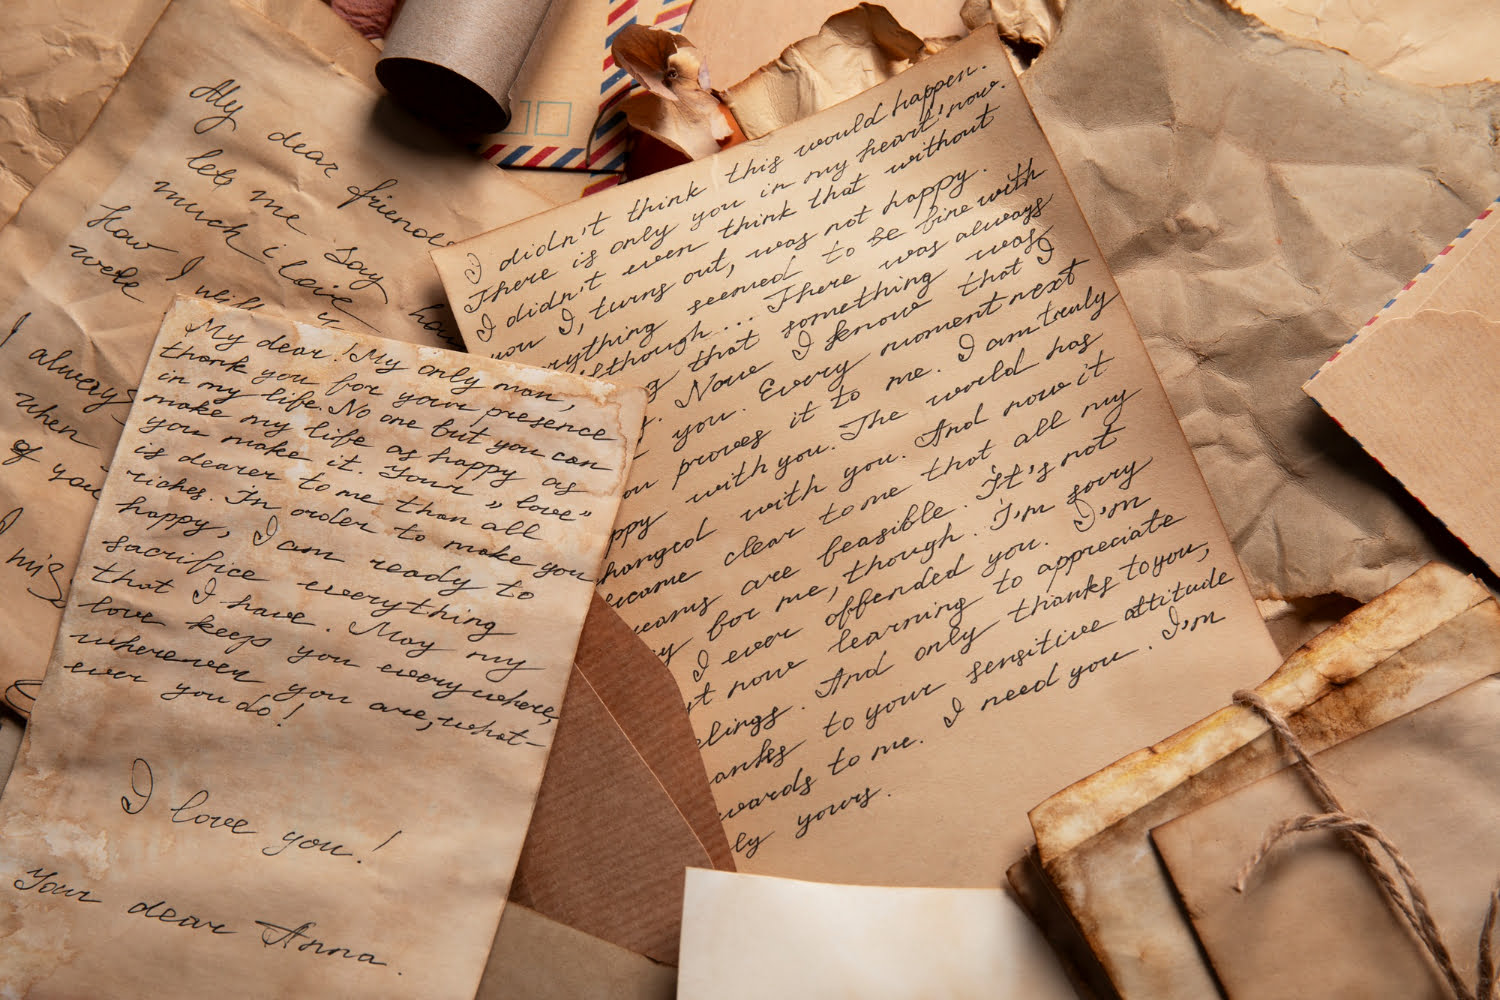 My dear friend
let me say
much i love
How I will
were
I always
when
of you
I miss
My dear! My only man,
thank you for your presence
in my life. No one but you can
make my life as happy as
you make it. Your "love"
is dearer to me than all
riches. In order to make you
happy, I am ready to
sacrifice everything
that I have. May my
love keep you everywhere,
wherever you are, what-
ever you do!
I love you!
Your dear Anna.
I didn't think this would happen.
There is only you in my heart now.
I didn't even think that without
you I, turns out, was not happy.
erything seemed to be fine with
lthough... There was always
g that something was
t. Now I know that I
you. Every moment next
ou proves it to me. I am truly
ppy with you. The world has
hanged with you. And now it
ecame clear to me that all my
eams are feasible. It's not
y for me, though. I'm sorry
I ever offended you. I'm
t now learning to appreciate
elings. And only thanks to you,
anks to your sensitive attitude
wards to me. I need you. I'm
ly yours.